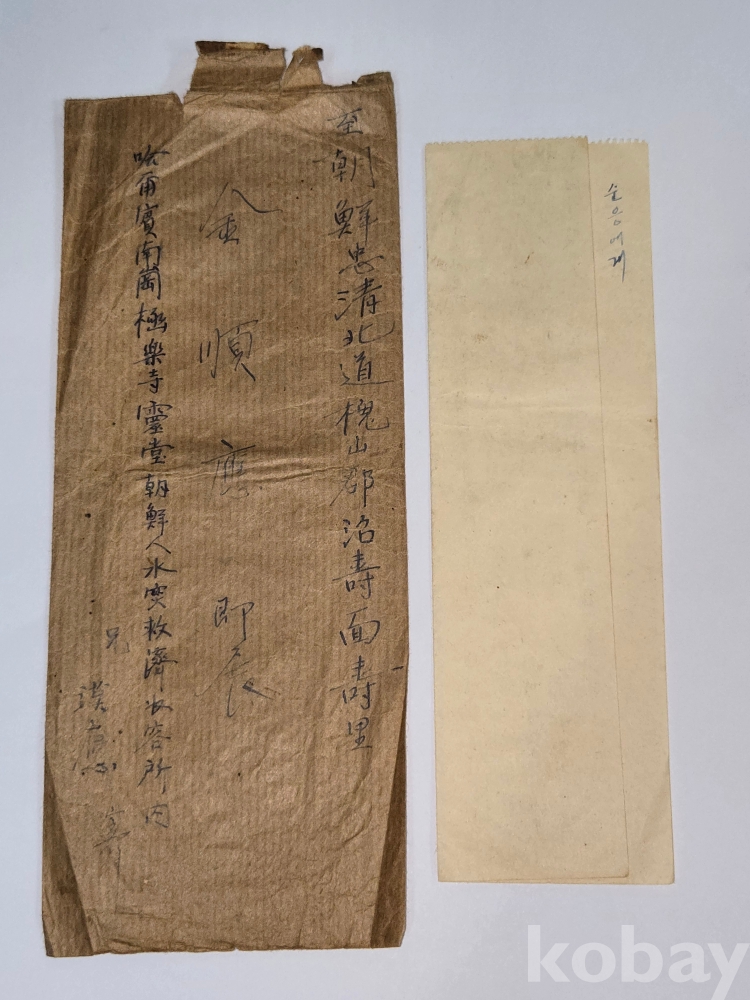 至朝鮮忠清北道槐山郡沼壽面壽里
金順應 即展
哈爾賓南崗極樂寺靈堂朝鮮人水災救濟收容所內
兄 漢 寄
순응에게
kobay